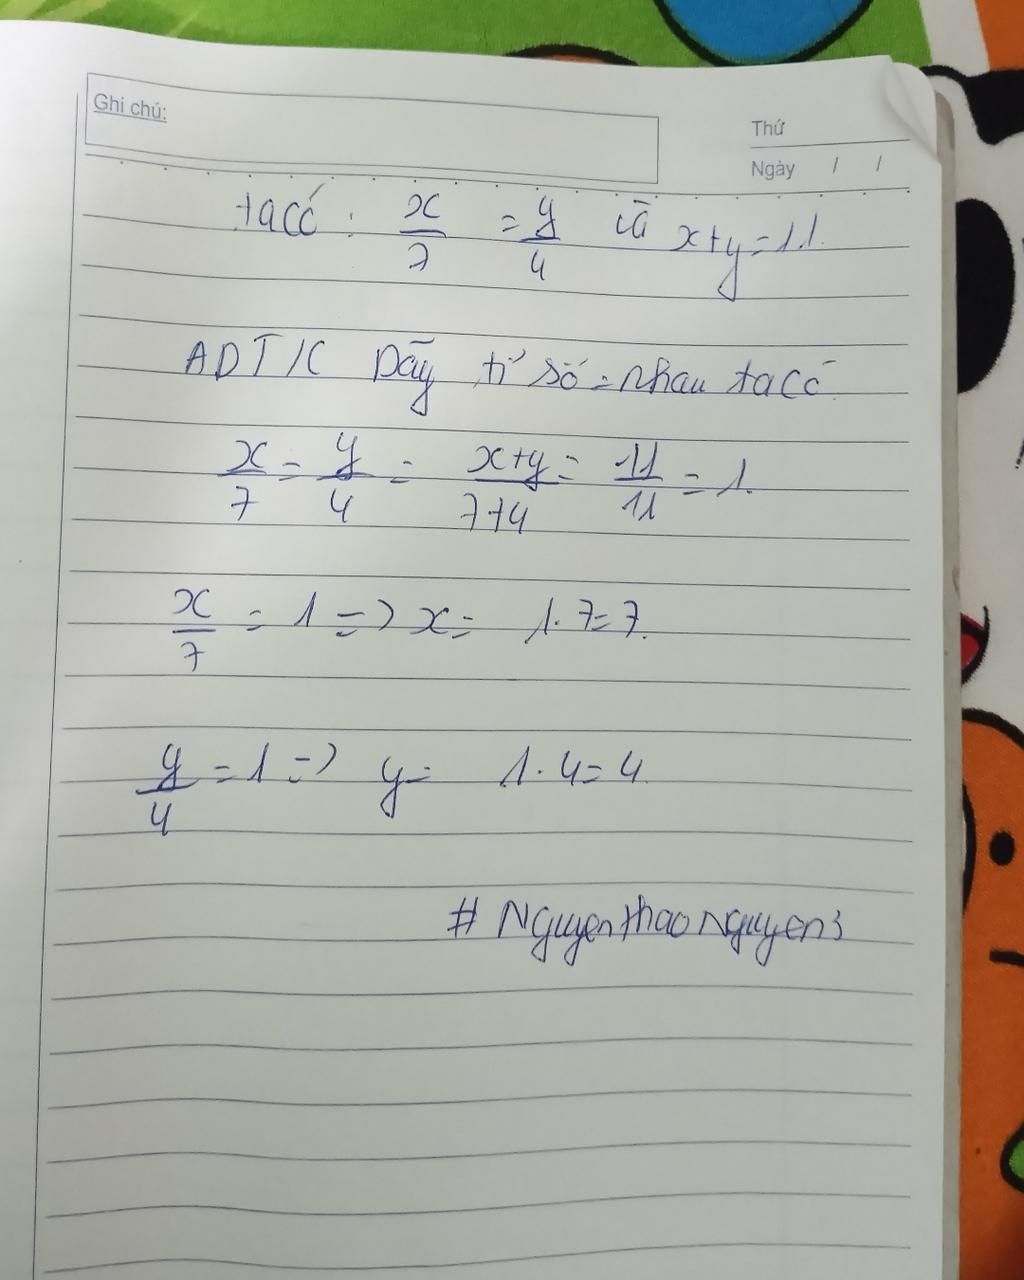 Ghi chú:
Thứ
Ngày / /
ta có : x/7 = y/4 và x+y=11.
ADT/C Dãy tỉ số = nhau ta có
x/7 = y/4 = x+y/7+4 = 11/11 = 1.
x/7 = 1 => x = 1.7=7.
y/4 = 1 => y = 1.4=4
# Nguyenthaonguyen3